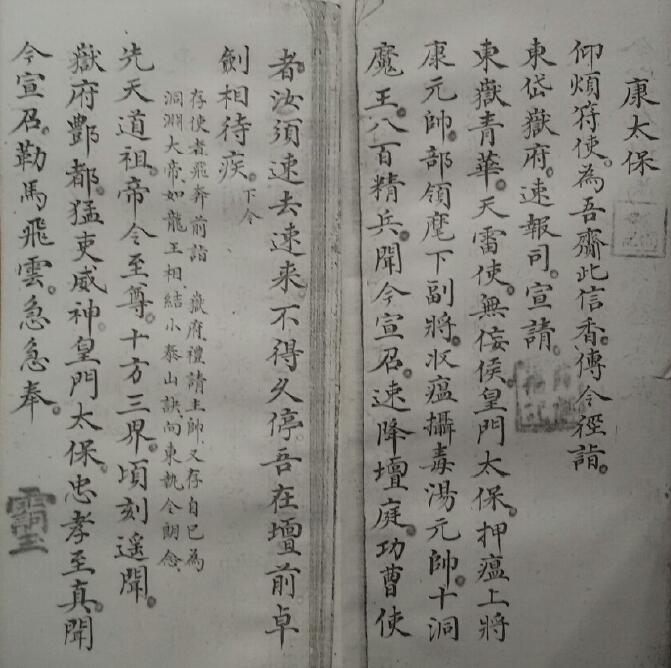 康太保
仰煩符使。為吾齎此信香。傳令徑詣。
東岱嶽府。速報司。宣請。
東嶽青華。天雷使。無侫侯。皇門太保。押瘟上將
康元帥。部領麾下副將。收瘟攝毒湯元帥。十洞
魔王。八百精兵。聞今宣召。速降壇庭。功曹使
者。汝須速去速來。不得久停。吾在壇前卓
劍相待疾。下令
存使者飛奔前詣 嶽府禮請主帥又存自己為
洞淵大帝如龍王相結小泰山訣向東執令朗念
先天道祖。帝令至尊。十方三界。頃刻遙聞。
嶽府酆都。猛吏威神。皇門太保。忠孝至真。聞
今宣召。勒馬飛雲。急急奉。